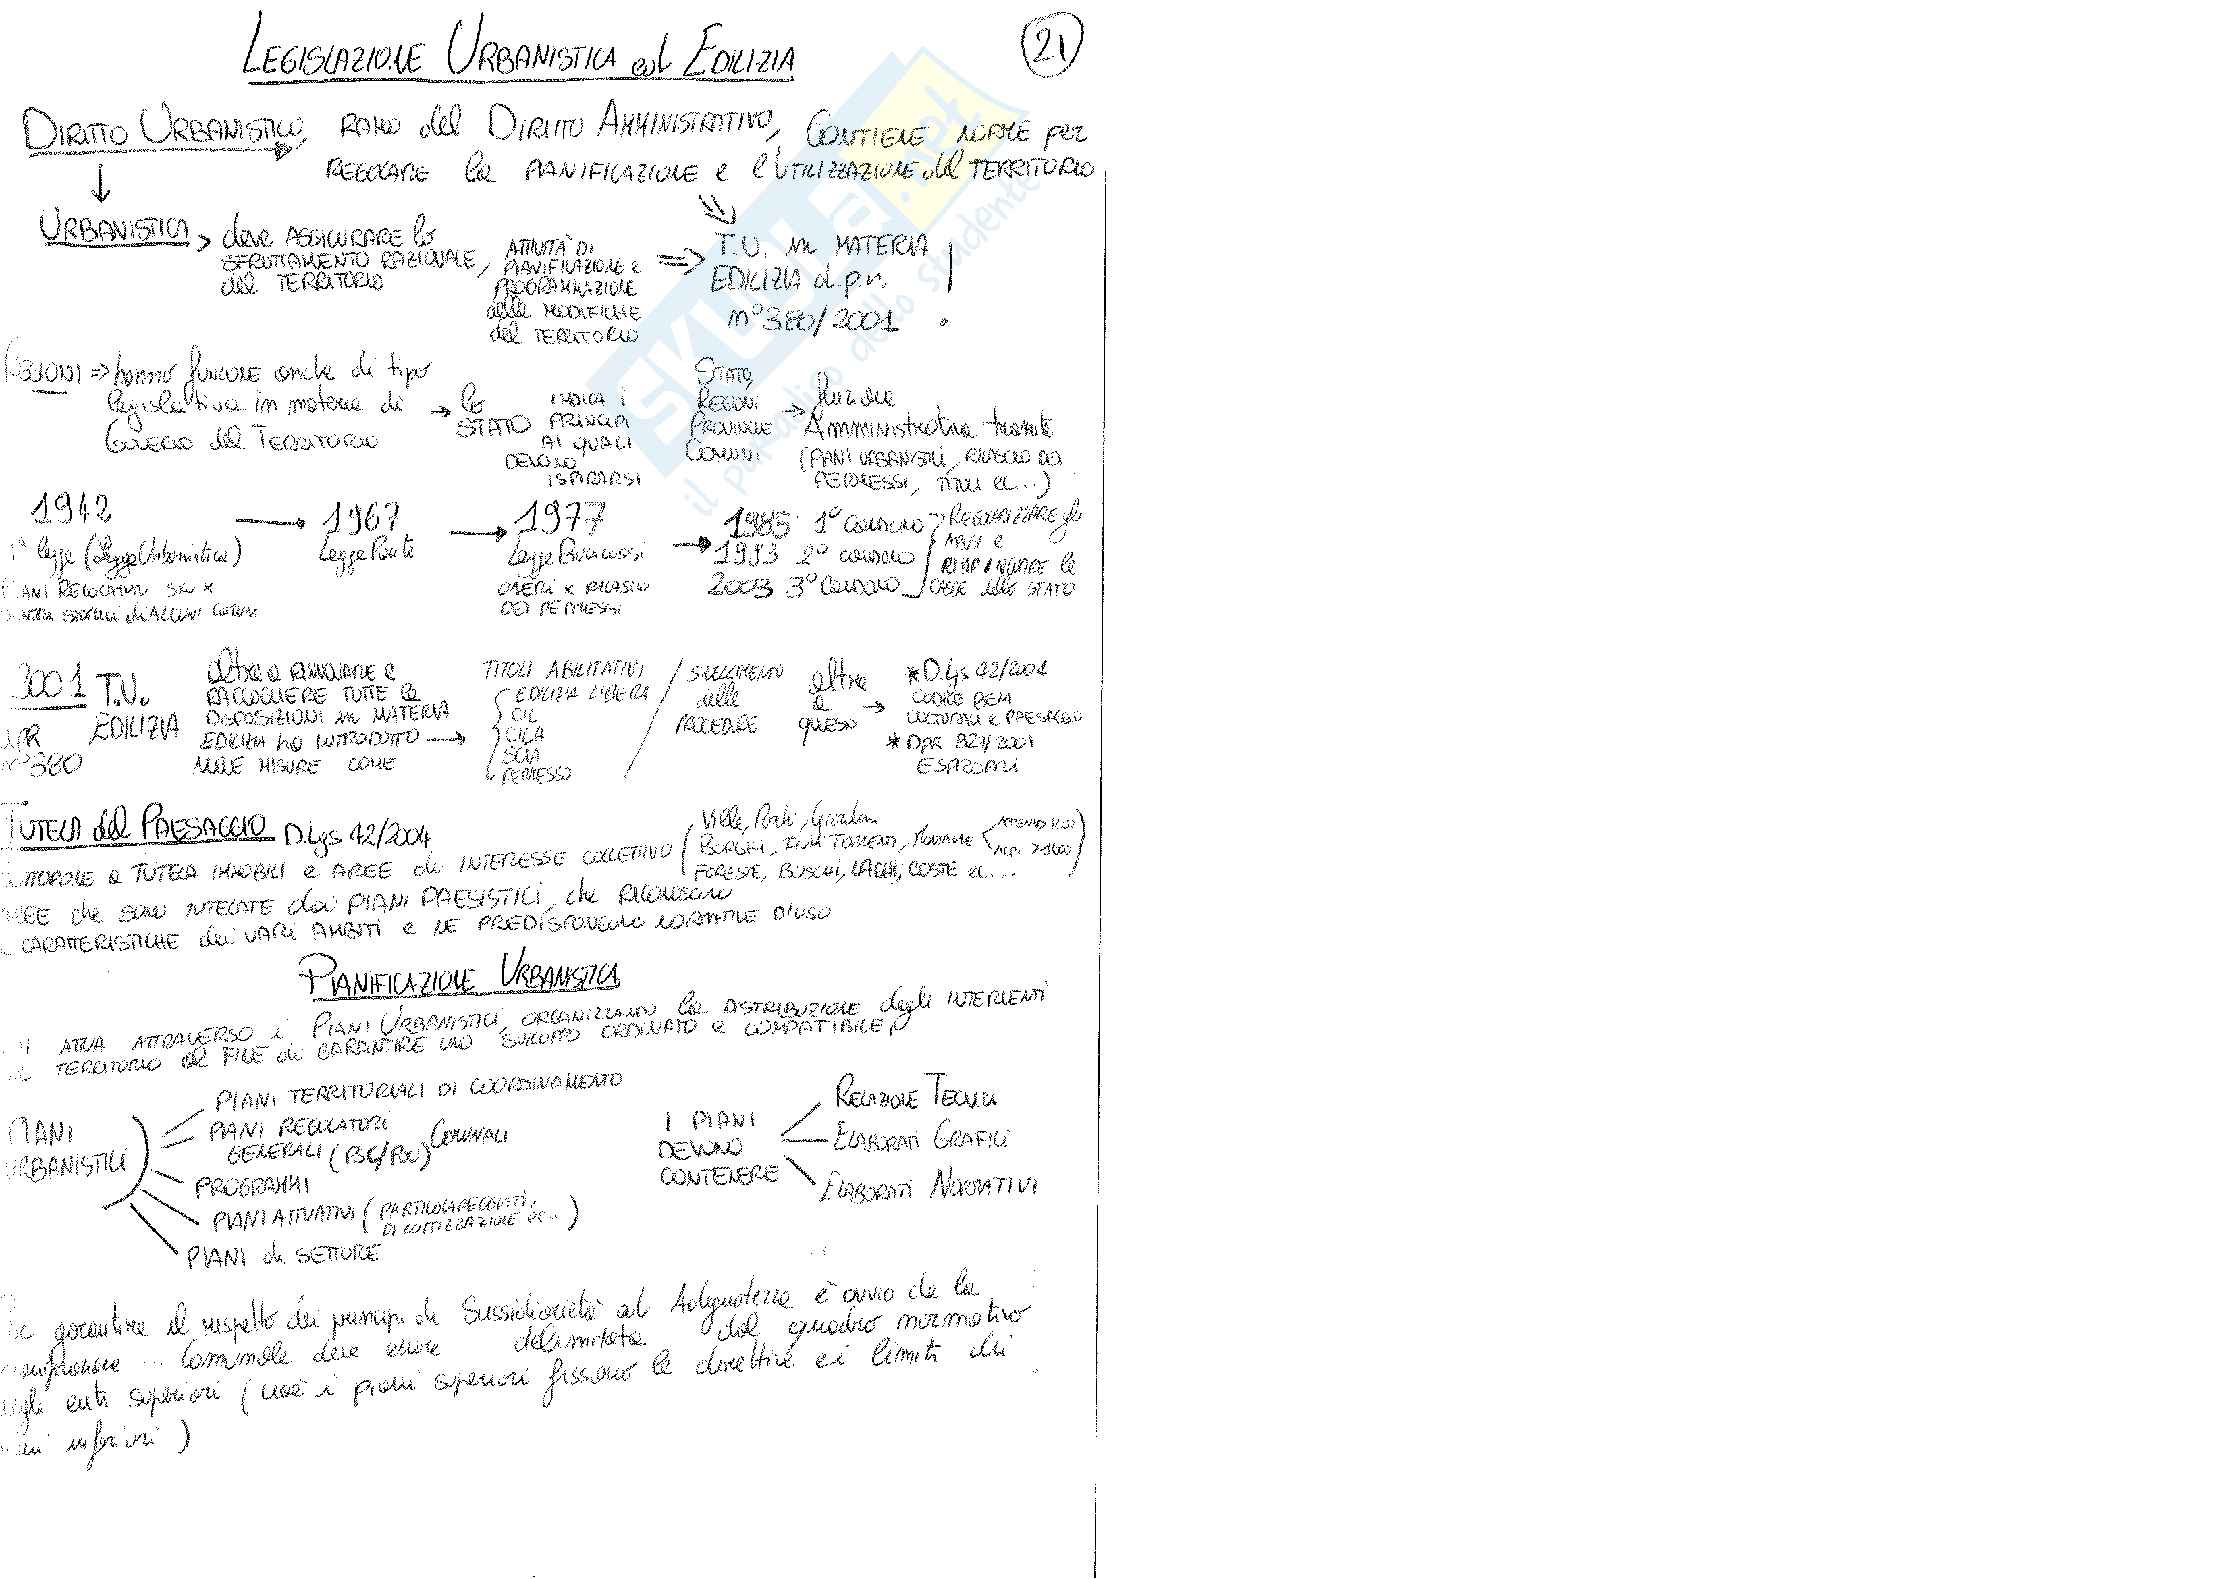 LEGISLAZIONE URBANISTICA ed EDILIZIA
21
DIRITTO URBANISTICO, RAMO del DIRITTO AMMINISTRATIVO, CONTIENE NORME PER
REGOLARE la PIANIFICAZIONE e l'UTILIZZAZIONE del TERRITORIO
URBANISTICA > deve ASSICURARE lo
SFRUTTAMENTO RAZIONALE,
del TERRITORIO
ATTIVITÀ DI
PIANIFICAZIONE e
PROGRAMMAZIONE
delle MODIFICHE
del TERRITORIO
⇒ T.U. in MATERIA
EDILIZIA d.p.r.
n°380/2001 !
REGIONI ⇒ hanno funzione anche di tipo
legislativa in materia di
GOVERNO del TERRITORIO
→ lo
STATO
INDICA i
PRINCIPI
AI QUALI
DEVONO
ISPIRARSI
STATO,
REGIONI
PROVINCIE
COMUNI
→ funzione
Amministrativa tramite
(PIANI URBANISTICI, RILASCIO dei
PERMESSI, ...)
1942
1ª legge (Legge Urbanistica)
PIANI REGOLATORI SOLO x
CENTRI STORICI di ALCUNI COMUNI
→ 1967
Legge Ponte
→ 1977
Legge Bucalossi
ONERI x RILASCIO
DEI PERMESSI
→ 1985 1° CONDONO
1993 2° CONDONO
2003 3° CONDONO
REGOLARIZZARE gli
ABUSI e
RIMPINGUARE le
CASSE dello STATO
2001 T.U.
EDILIZIA
DPR
n°380
oltre a RIUNIRE e
RACCOGLIERE TUTTE le
DISPOSIZIONI in MATERIA
EDILIZIA ha INTRODOTTO →
MISURE COME
TITOLI ABILITATIVI
EDILIZIA LIBERA
CIL
CILA
SCIA
PERMESSO
/ SNELLIMENTO
delle
PROCEDURE
oltre
a
questo →
* D.lgs 42/2004
CODICE BENI
CULTURALI e PAESAGGIO
* DPR 327/2001
ESPROPRI
TUTELA del PAESAGGIO D.lgs 42/2004
SOTTOPONE a TUTELA IMMOBILI e AREE di INTERESSE COLLETTIVO
(Ville, Parchi, Giardini
BORGHI, FIUMI TORRENTI, MONTAGNE
FORESTE, BOSCHI, LAGHI, COSTE ...
APPENNINI
ALPI >1600)
AREE che SONO TUTELATE dai PIANI PAESISTICI, che RICONOSCONO
le CARATTERISTICHE dei VARI AMBITI e NE PREDISPONGONO NORMATIVE D'USO
PIANIFICAZIONE URBANISTICA
SI ATTUA ATTRAVERSO i PIANI URBANISTICI, ORGANIZZANDO la DISTRIBUZIONE degli INTERVENTI
TERRITORIO al FINE di GARANTIRE UNO SVILUPPO ORDINATO e COMPATIBILE
PIANI
URBANISTICI
PIANI TERRITORIALI DI COORDINAMENTO
PIANI REGOLATORI
GENERALI (PSC/POC) COMUNALI
PROGRAMMI
PIANI ATTUATIVI (PARTICOLAREGGIATI,
DI LOTTIZZAZIONE ...)
PIANI di SETTORE
I PIANI
DEVONO
CONTENERE
RELAZIONE TECNICA
ELABORATI GRAFICI
ELABORATI NORMATIVI
garantire il rispetto dei principi di Sussidiarietà ed Adeguatezza è ovvio che la
pianificazione ... Comunale deve essere delimitata dal quadro normativo
degli enti superiori (cioè i piani superiori fissano le direttive e i limiti dei
piani inferiori)
skuola.net
il paradiso dello studente